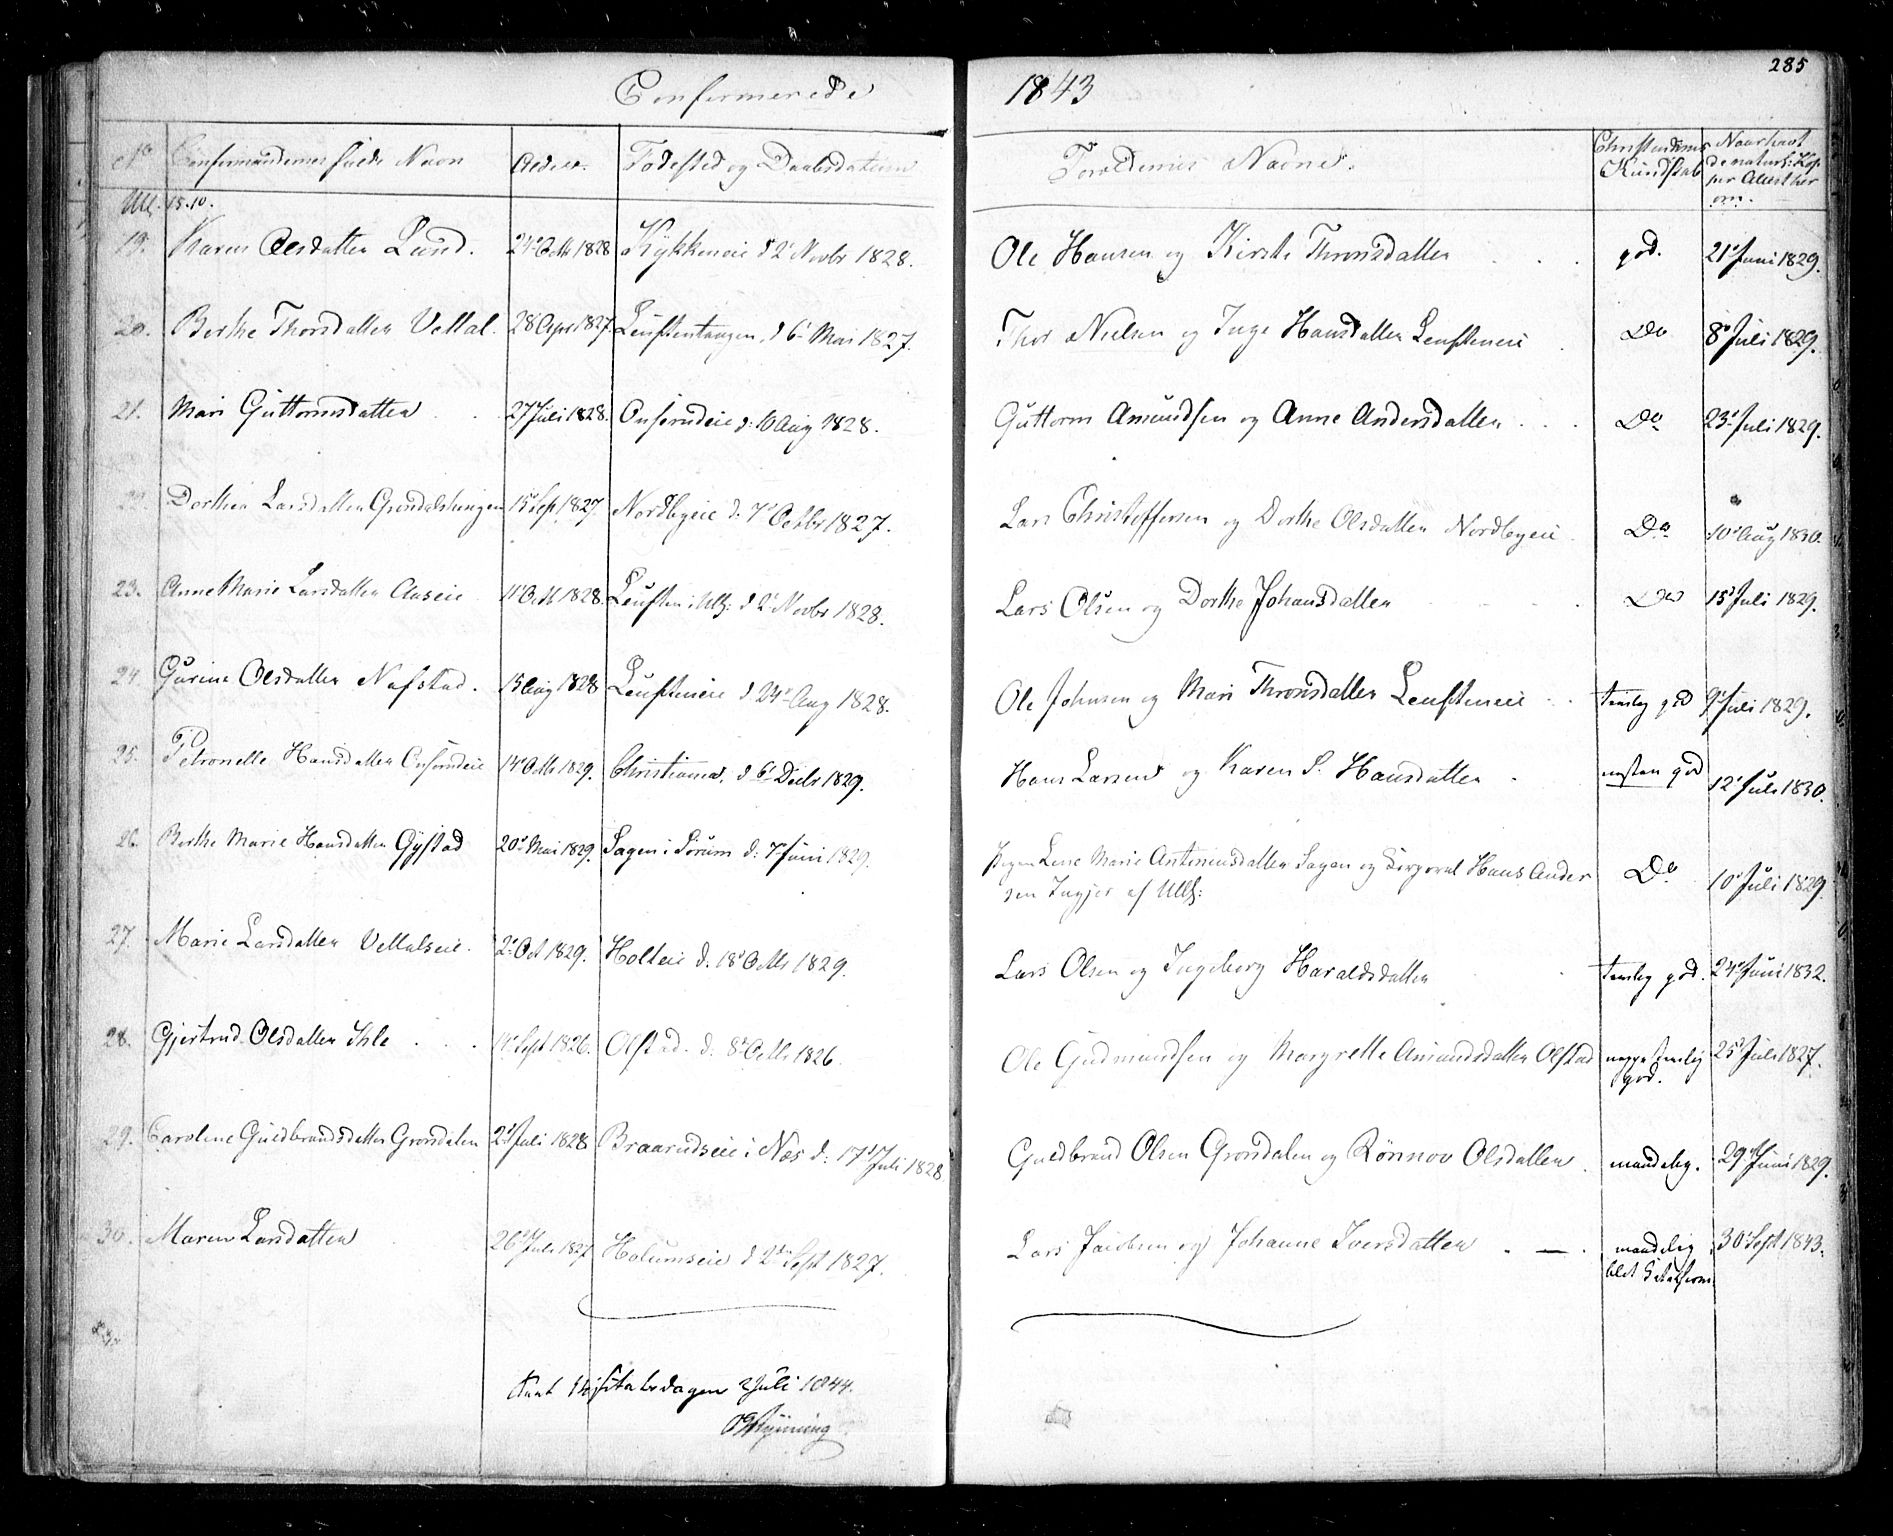 Confirmerede 1843 285
No Confirmandernes fulde Navn Alder. Fødested og Daabsdatum Forældrenes Navne. Christendoms Kundskab Naar havt de naturl: Kopper eller vacc
Ull. 15.10.
19. Karen Olsdatter Lund. 24 Octb 1828 Kykkeneie d 2 Novbr 1828. Ole Hansen og Kirsti Thronsdatter god. 21 Juni 1829.
20. Berthe Thorsdatter Vettal. 28 Apr 1827. Leufstentangen, d 6 Mai 1827. Thor Nielsen og Inge Hansdatter Leufsteneie Do 8 Juli 1829.
21. Mari Guttormsdatter 27 Juli 1828. Onsrudeie d: 10 Aug 1828. Guttorm Amundsen og Anne Andersdatter Do 23 Juli 1829.
22. Dorthea Larsdatter 15 Sep 1827. Nordbyeie d. 7 Octbr 1827. Lars Christoffersen og Dorthe Olsdatter Nordbyeie Do 10 Aug 1830.
23. Anne Marie Larsdatter Aaseie 11 Octb 1828. Leufsten i Ulls: d 2 Novbr 1828. Lars Olsen og Dorthe Johansdatter Do 15 Juli 1829.
24. Gurine Olsdatter Nafstad. 15 Aug 1828 Leufsteneie d 24 Aug 1828. Ole Johnsen og Mari Thronsdatter Leufsteneie temlig god 9 Juli 1829.
25. Petronelle Hansdatter Onsrudeie 14 Octb 1829. Christiania, d 6 Decbr 1829. Hans Larsen og Karen S. Hansdatter næsten god 12 Juli 1830.
26. Berthe Marie Hansdatter Gystad 20 Mai 1829. Sagen i Sørum d: 7 Juni 1829. Pigen Lene Marie Antoniusdatter Sagen og Corporal Hans Ander
sen af Ulls: Do 10 Juli 1829.
27. Marie Larsdatter Vettalseie. 2 Oct 1829. Holteie d. 18 Octb 1829. Lars Olsen og Ingeborg Haraldsdatter temlig god. 24 Juni 1832.
28. Gjertrud Olsdatter Ihle 14 Sept 1826. Olstad. d. 8 Octb 1826. Ole Gudmundsen og Margrethe Amundsdatter Olstad neppe temlig 25 Juli 1827.
god.
29. Caroline Guldbrandsdatter Grønsdalen 2 Juli 1828 Braarudseie i Næs d: 17 Juli 1828 Guldbrand Olsen Grønsdalen og Rønnov Olsdatter maadelig. 29 Juni 1829.
30. Maren Larsdatter 26 Juli 1827 Holumseie d 2den Sept 1827. Lars Jacobsen og Johanne Iversdatter maadelig 30 Sept 1843.
Seet Visitatsdagen 2 Juli 1844.